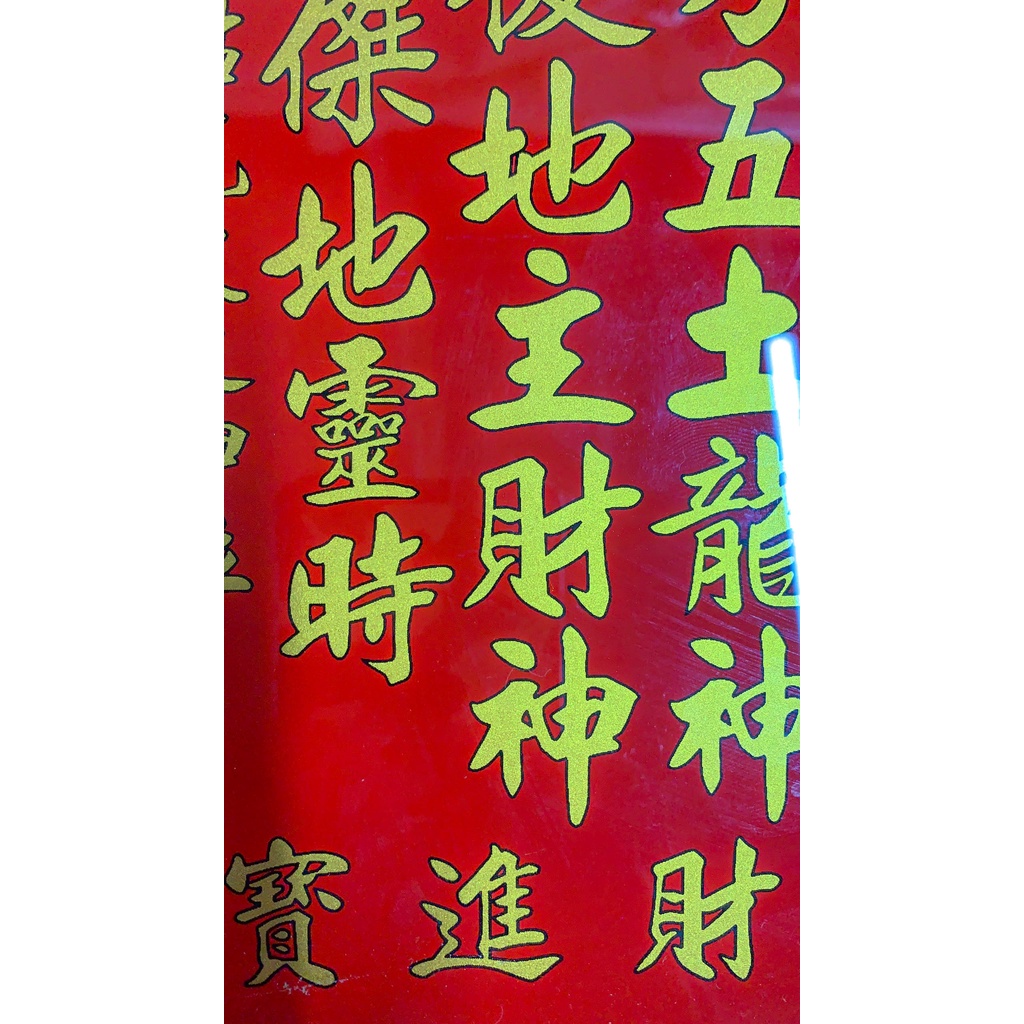 五土龍神
地主財神
傑地靈時
財進寶